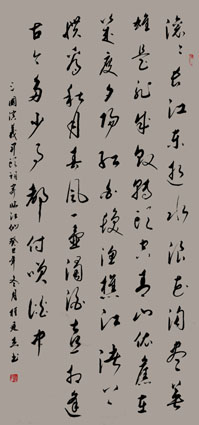 滚滚长江东逝水浪花淘尽英
雄是非成败转头空青山依旧在
几度夕阳红白发渔樵江渚上
惯看秋月春风一壶浊酒喜相逢
古今多少事都付笑谈中
三国演义开 词 临江仙癸巳年冬月 书